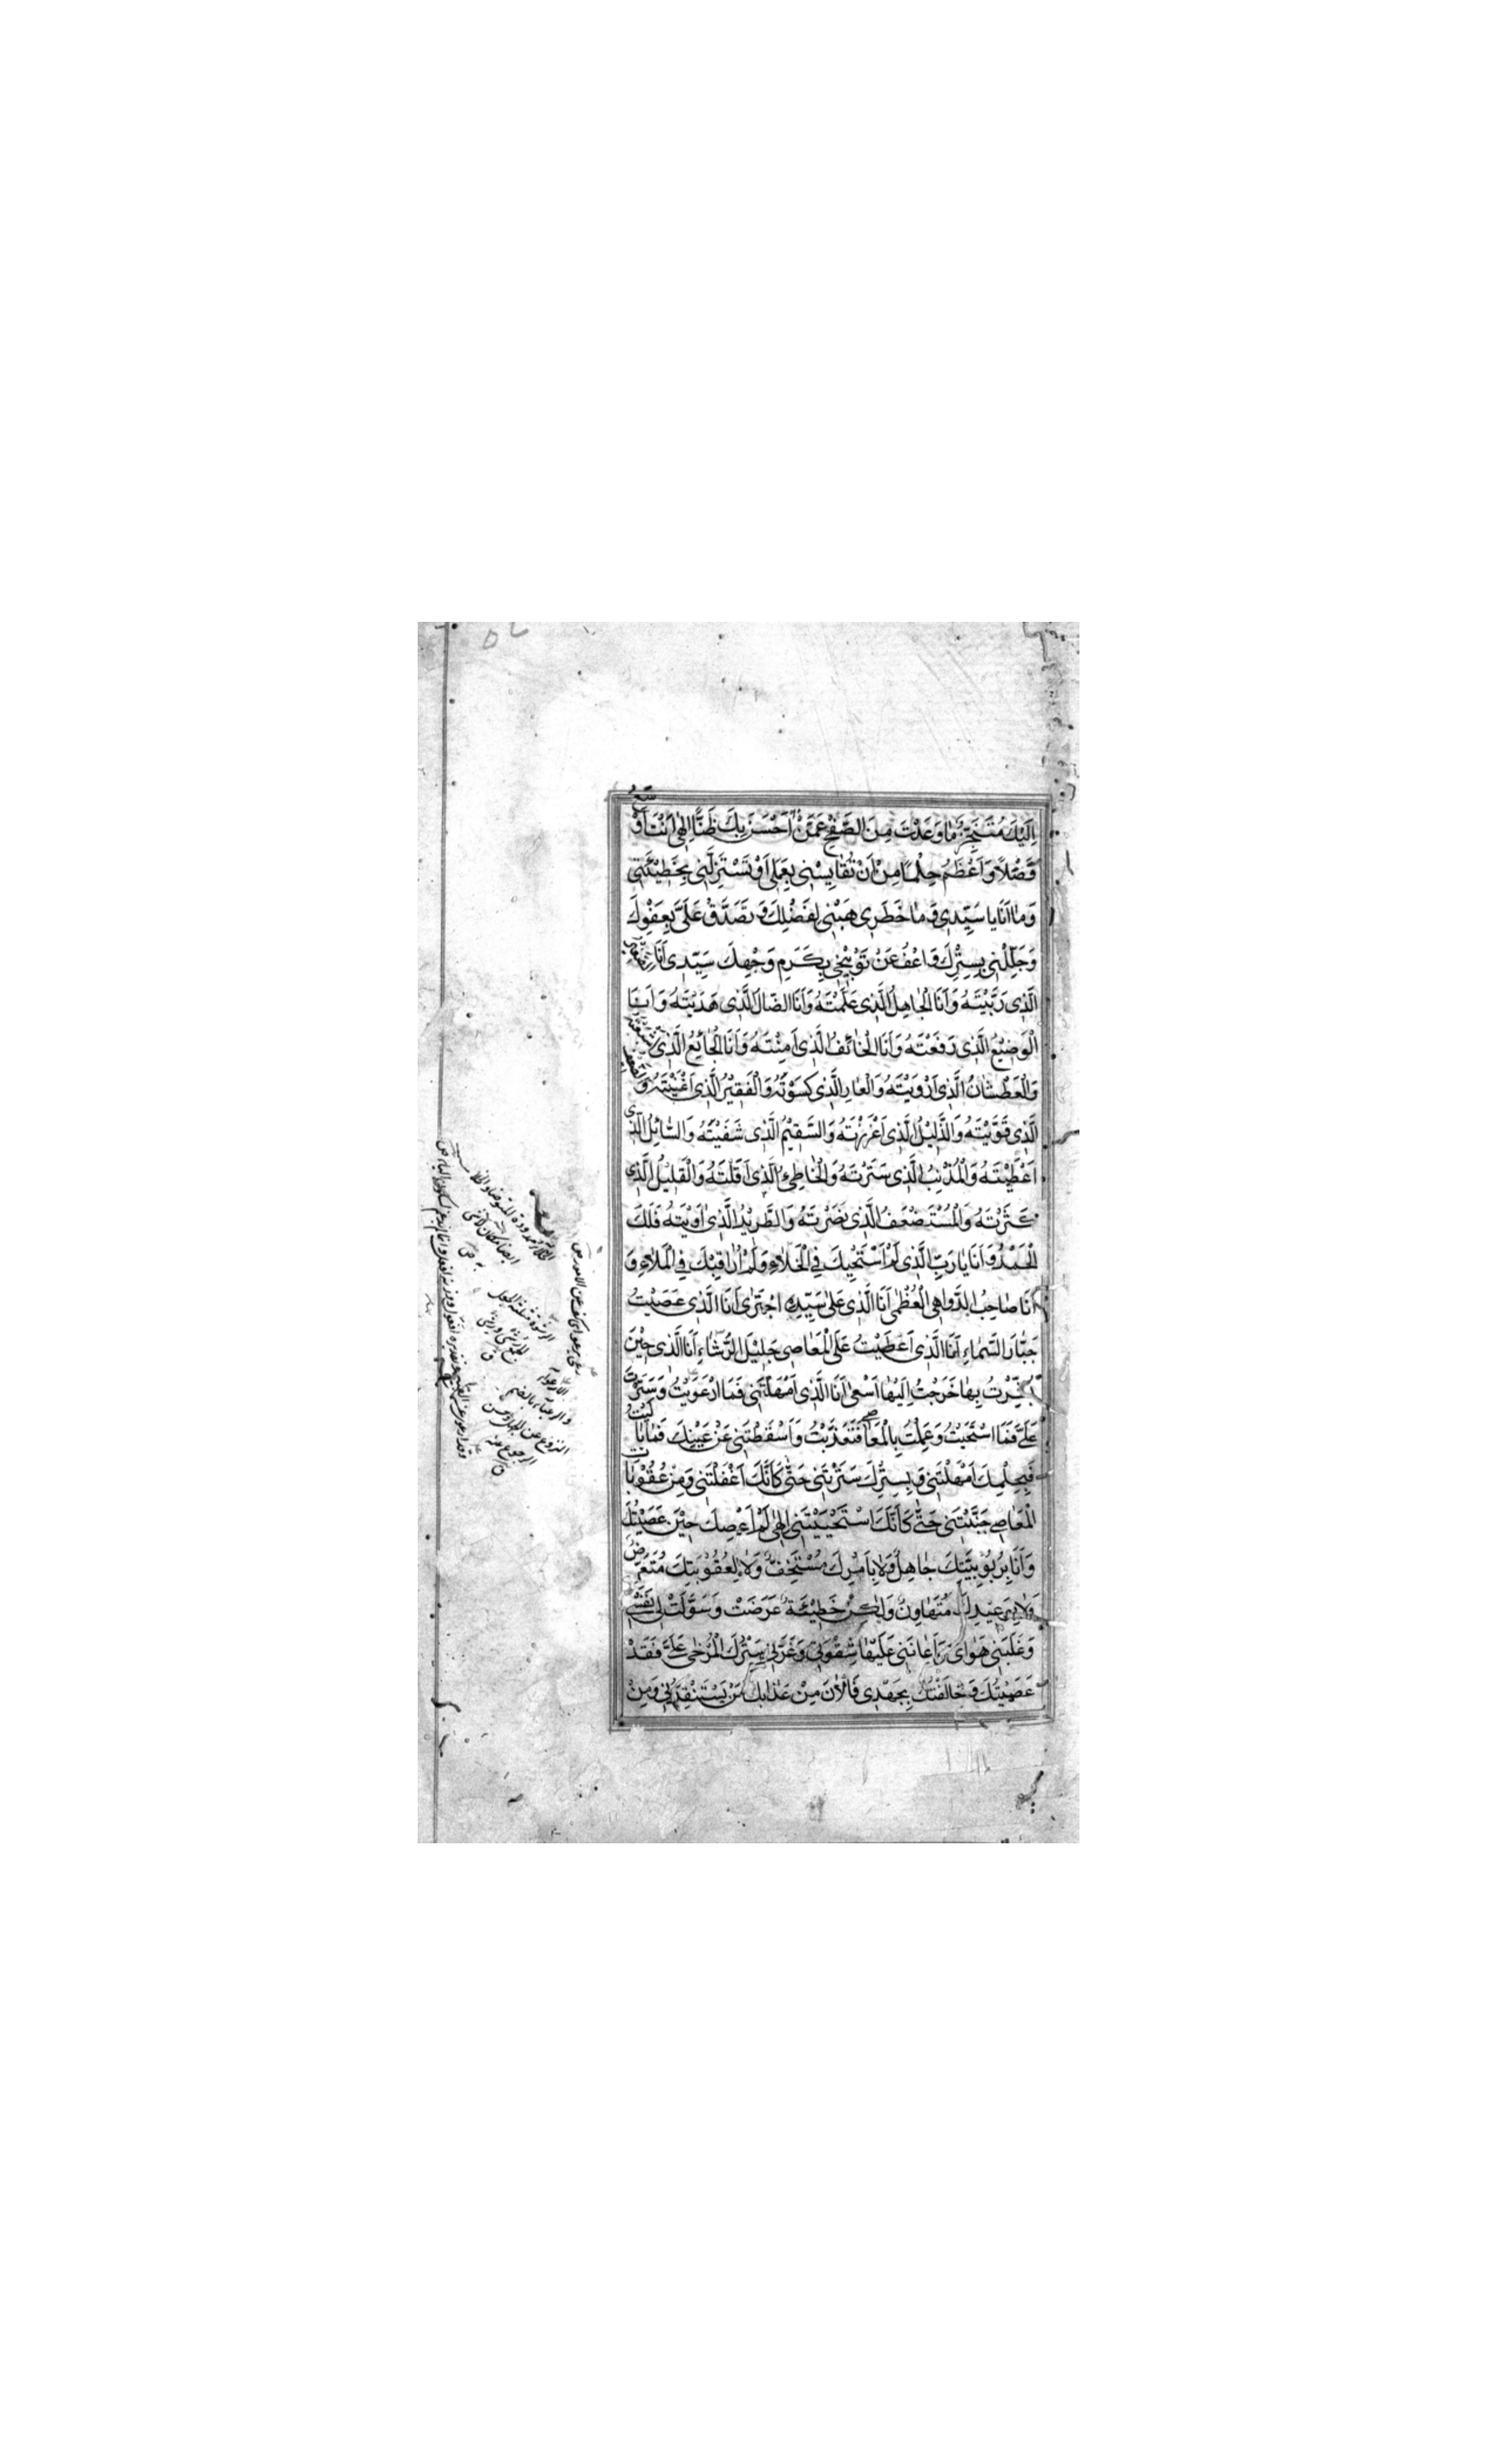 اِلَيْكَ مُتَنَجِّزٌ مٰا وَعَدْتَ مِنَ الصَّفْحِ عَمَّنْ اَحْسَنَ بِكَ ظَنًّا اِلٰهى اَنْتَ اَوْسَعُ
فَضْلًا وَ اَعْظَمُ حِلْمًا مِنْ اَنْ تُقٰايِسَنى بِعَمَلى اَوْ تَسْتَزِلَّنى بِخَطيْئَتى
وَ مٰا اَنَا يا سَيِّدى وَ مٰا خَطَرى هَبْنى لِفَضْلِكَ وَ تَصَدَّقْ عَلَىَّ بِعَفْوِكَ
وَ جَلِّلْنى بِسِتْرِكَ وَ اعْفُ عَنْ تَوْبيْخى بِكَرَمِ وَجْهِكَ سَيِّدى اَنَا الصَّغيرُ
الَّذى رَبَّيْتَهُ وَ اَنَا الْجٰاهِلُ الَّذى عَلَّمْتَهُ وَ اَنَا الضّالُّ الَّذى هَدَيْتَهُ وَ اَنَا
الْوَضيْعُ الَّذى رَفَعْتَهُ وَ اَنَا الْخٰائِفُ الَّذى اٰمَنْتَهُ وَ اَنَا الْجٰايِعُ الَّذى اَشْبَعْتَهُ
وَ الْعَطْشٰانُ الَّذى اَرْوَيْتَهُ وَ الْعٰارِ الَّذى كَسَوْتَهُ وَ الْفَقيْرُ الَّذى اَغْنَيْتَهُ وَ الضَّعيفُ
الَّذى قَوَّيْتَهُ وَ الذَّليْلُ الَّذى اَعْزَزْتَهُ وَ السَّقيْمُ الَّذى شَفَيْتَهُ وَ السّٰائِلُ الَّذى
اَعْطَيْتَهُ وَ الْمُذْنِبُ الَّذى سَتَرْتَهُ وَ الْخٰاطِئُ الَّذى اَقَلْتَهُ وَ الْقَليْلُ الَّذى
كَثَّرْتَهُ وَ الْمُسْتَضْعَفُ الَّذى نَصَرْتَهُ وَ الطَّريْدُ الَّذى اٰوَيْتَهُ فَلَكَ
الْحَمْدُ وَ اَنَا يٰا رَبِّ الَّذى لَمْ اَسْتَحْيِكَ فِى الْخَلٰاءِ وَ لَمْ اُرٰاقِبْكَ فِى الْمَلٰاءِ وَ
اَنَا صٰاحِبُ الدَّوٰاهِى الْعُظْمٰى اَنَا الَّذى عَلٰى سَيِّدِهِ اجْتَرٰى اَنَا الَّذى عَصَيْتُ
جَبّٰارَ السَّمٰاءِ اَنَا الَّذى اَعْطَيْتُ عَلَى الْمَعٰاصى جَليْلَ الرُّشٰاءِ اَنَا الَّذى حيْنَ
بُشِّرْتُ بِهٰا خَرَجْتُ اِلَيْهٰا اَسْعٰى اَنَا الَّذى اَمْهَلْتَنى فَمَا ارْعَوَيْتُ وَ سَتَرْتَ
عَلَىَّ فَمَا اسْتَحْيَيْتُ وَ عَمِلْتُ بِالْمَعٰاصى فَتَعَدَّيْتُ وَ اَسْقَطْتَنى عَنْ عَيْنِكَ فَمٰا بٰالَيْتُ
فَبِحِلْمِكَ اَمْهَلْتَنى وَ بِسِتْرِكَ سَتَرْتَنى حَتّٰى كَاَنَّكَ اَغْفَلْتَنى وَ مِنْ عُقُوْبٰاتِ
الْمَعٰاصى جَنَّبْتَنى حَتّٰى كَاَنَّكَ اسْتَحْيَيْتَنى اِلٰهى لَمْ اَعْصِكَ حيْنَ عَصَيْتُكَ
وَ اَنَا بِرُبُوْبِيَّتِكَ جٰاهِلٌ وَ لٰا بِاَمْرِكَ مُسْتَخِفٌّ وَ لٰا لِعُقُوْبَتِكَ مُتَعَرِّضٌ
وَ لٰا بِوَعيْدِكَ مُتَهٰاوِنٌ وَ لٰكِنْ خَطيْئَةٌ عَرَضَتْ وَ سَوَّلَتْ لى نَفْسى
وَ غَلَبَنى هَوٰاىَ وَ اَعٰانَنى عَلَيْهٰا شِقْوَتى وَ غَرَّنى سِتْرُكَ الْمُرْخٰى عَلَىَّ فَقَدْ
عَصَيْتُكَ وَ خٰالَفْتُكَ بِجَهْدى فَالْاٰنَ مِنْ عَذٰابِكَ مَنْ يَسْتَنْقِذُنى وَ مِنْ